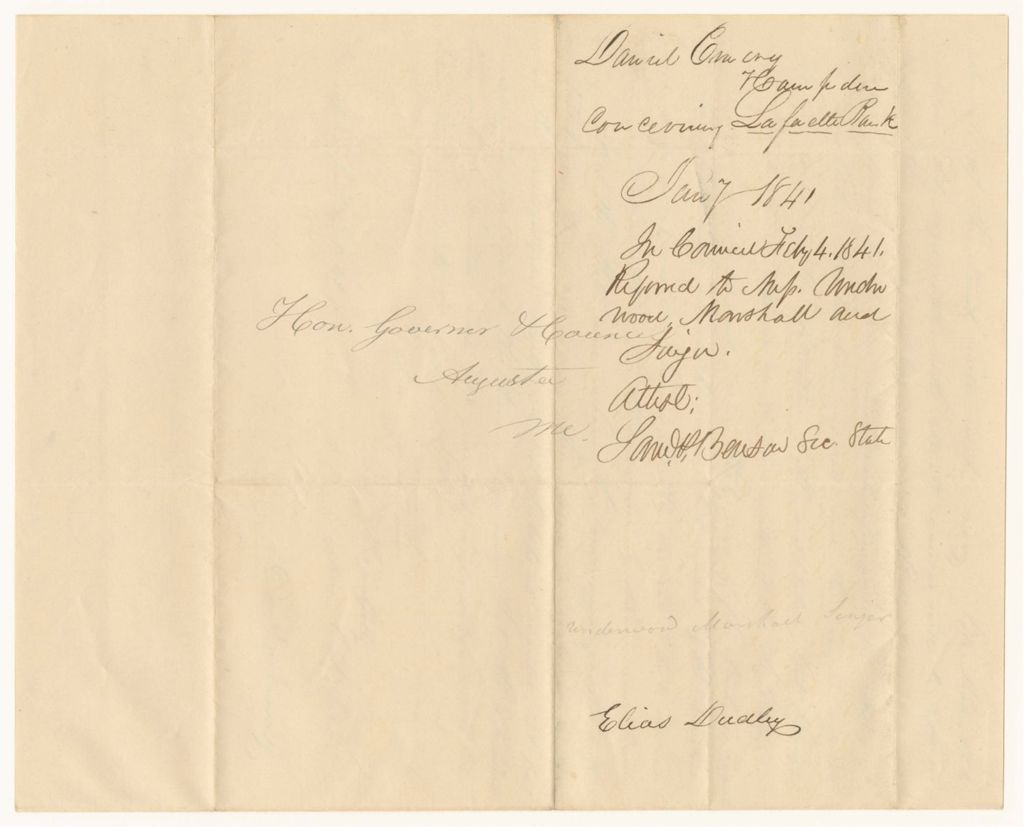 Daniel Emery
Hampden
Concerning Lafaette Bank
Jany 1841
In Council Feby 4. 1841.
Referred to Mess. Under
wood, Marshall and
Attest;
Saml. P. Benson Sec. State
Hon. Governer & Council
Augusta
Me.
Underwood Marshall
Elias Dudley